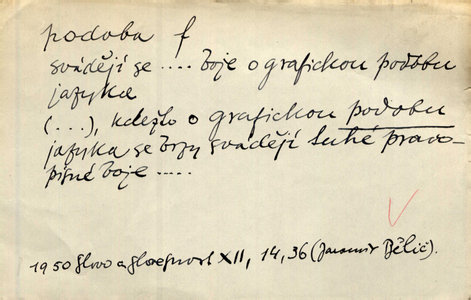 podoba f
svádějí se .... boje o grafickou podobu
jazyka
(...), kdežto o grafickou podobu
jazyka se brzy svádějí tuhé pravo-
pisné boje .....
1950 Slovo a slovesnost XII, 14, 36 (Jaromír Bělič).